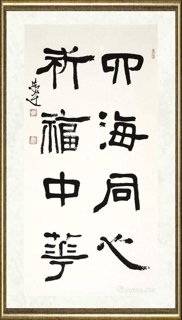 四海同心
祈福中華